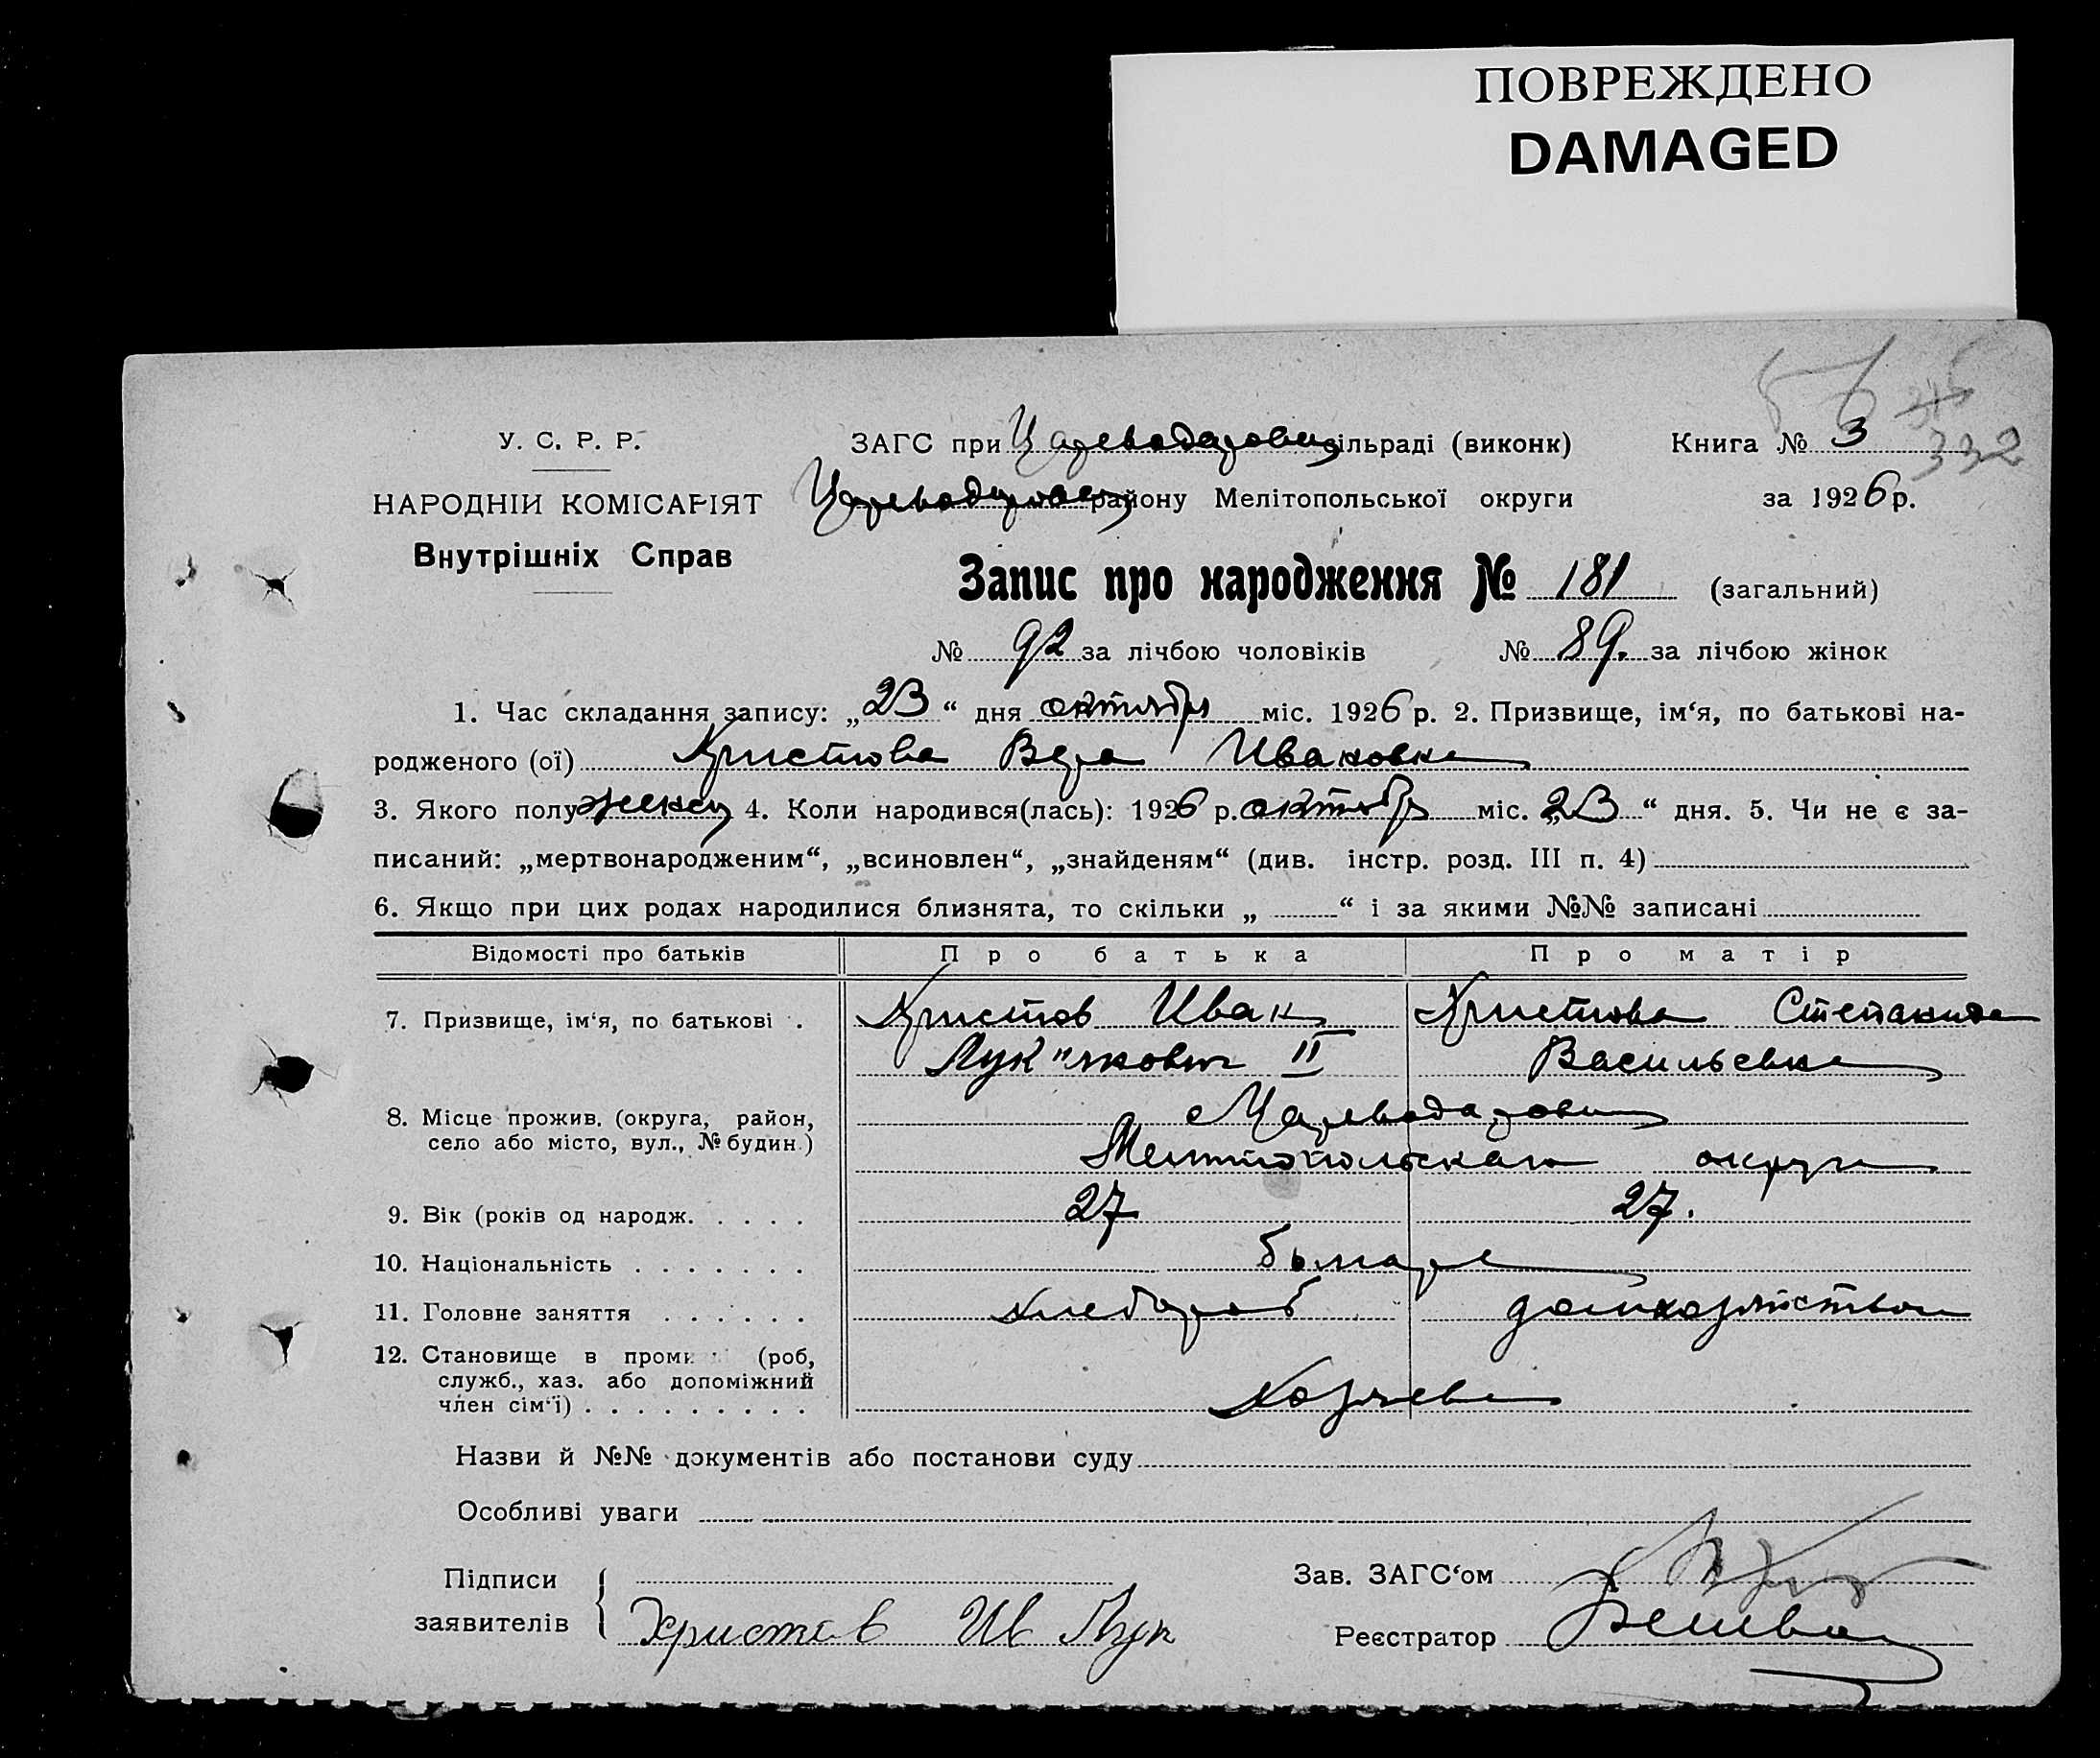 ПОВРЕЖДЕНО
DAMAGED
332
У. С. Р. Р.
ЗАГС при Цареводаровск сільраді (виконк)
Книга № 3
НАРОДНІЙ КОМІСАРІЯТ
Цареводаровск району Мелітопольської округи
за 1926 р.
Внутрішніх Справ
Запис про народження № 181 (загальний)
№ 92 за лічбою чоловіків № 89. за лічбою жінок
1. Час складання запису: „23“ дня октября міс. 1926 р. 2. Призвище, ім‘я, по батькові на-
родженого (ої) Христова Вера Ивановна
3. Якого полу женск 4. Коли народився(лась): 1926 р. октябр міс. „23“ дня. 5. Чи не є за-
писаний: „мертвонародженим“, „всиновлен“, „знайденям“ (див. інстр. розд. III п. 4)
6. Якщо при цих родах народилися близнята, то скільки „ “ і за якими №№ записані
Відомості про батьків Про батька Про матір
7. Призвище, ім‘я, по батькові . Христов Иван Христова Степанида
Лук"янович II Васильевна
8. Місце прожив. (округа, район,
село або місто, вул., № будин.) Мелитопольская округи
9. Вік (років од народж. . . . . 27 27.
10. Національність . . . . . . . българе
11. Головне заняття . . . . . . хлебороб домхозяйством
12. Становище в проми (роб,
служб., хаз. або допоміжний
член сім‘ї) . . . . . . . . . Хозяева
Назви й №№ документів або постанови суду
Особливі уваги
Підписи
заявителів Христов Ив Лук
Зав. ЗАГС‘ом
Реєстратор